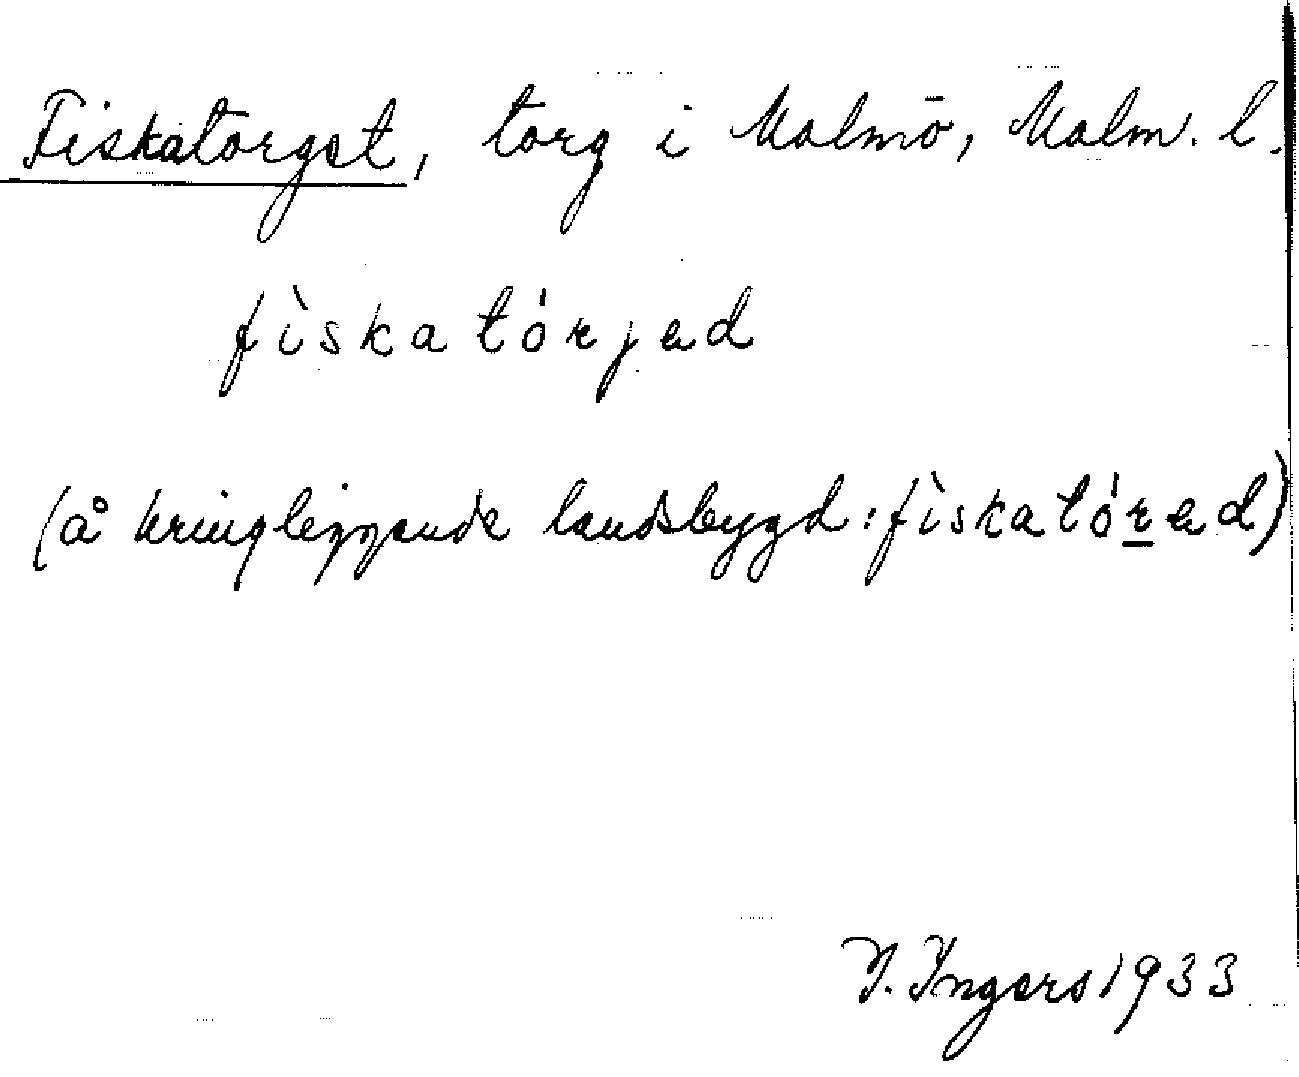 Fiskatorget, torg i Malmö, Malm. l.
fìskatórjəd
(å kringliggande landsbygd: fìskatórəd)
I. Ingers 1933